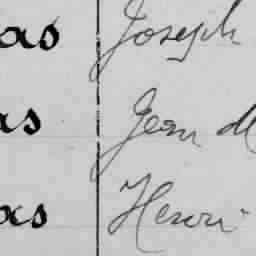 as Joseph
as Jean M
as Henri